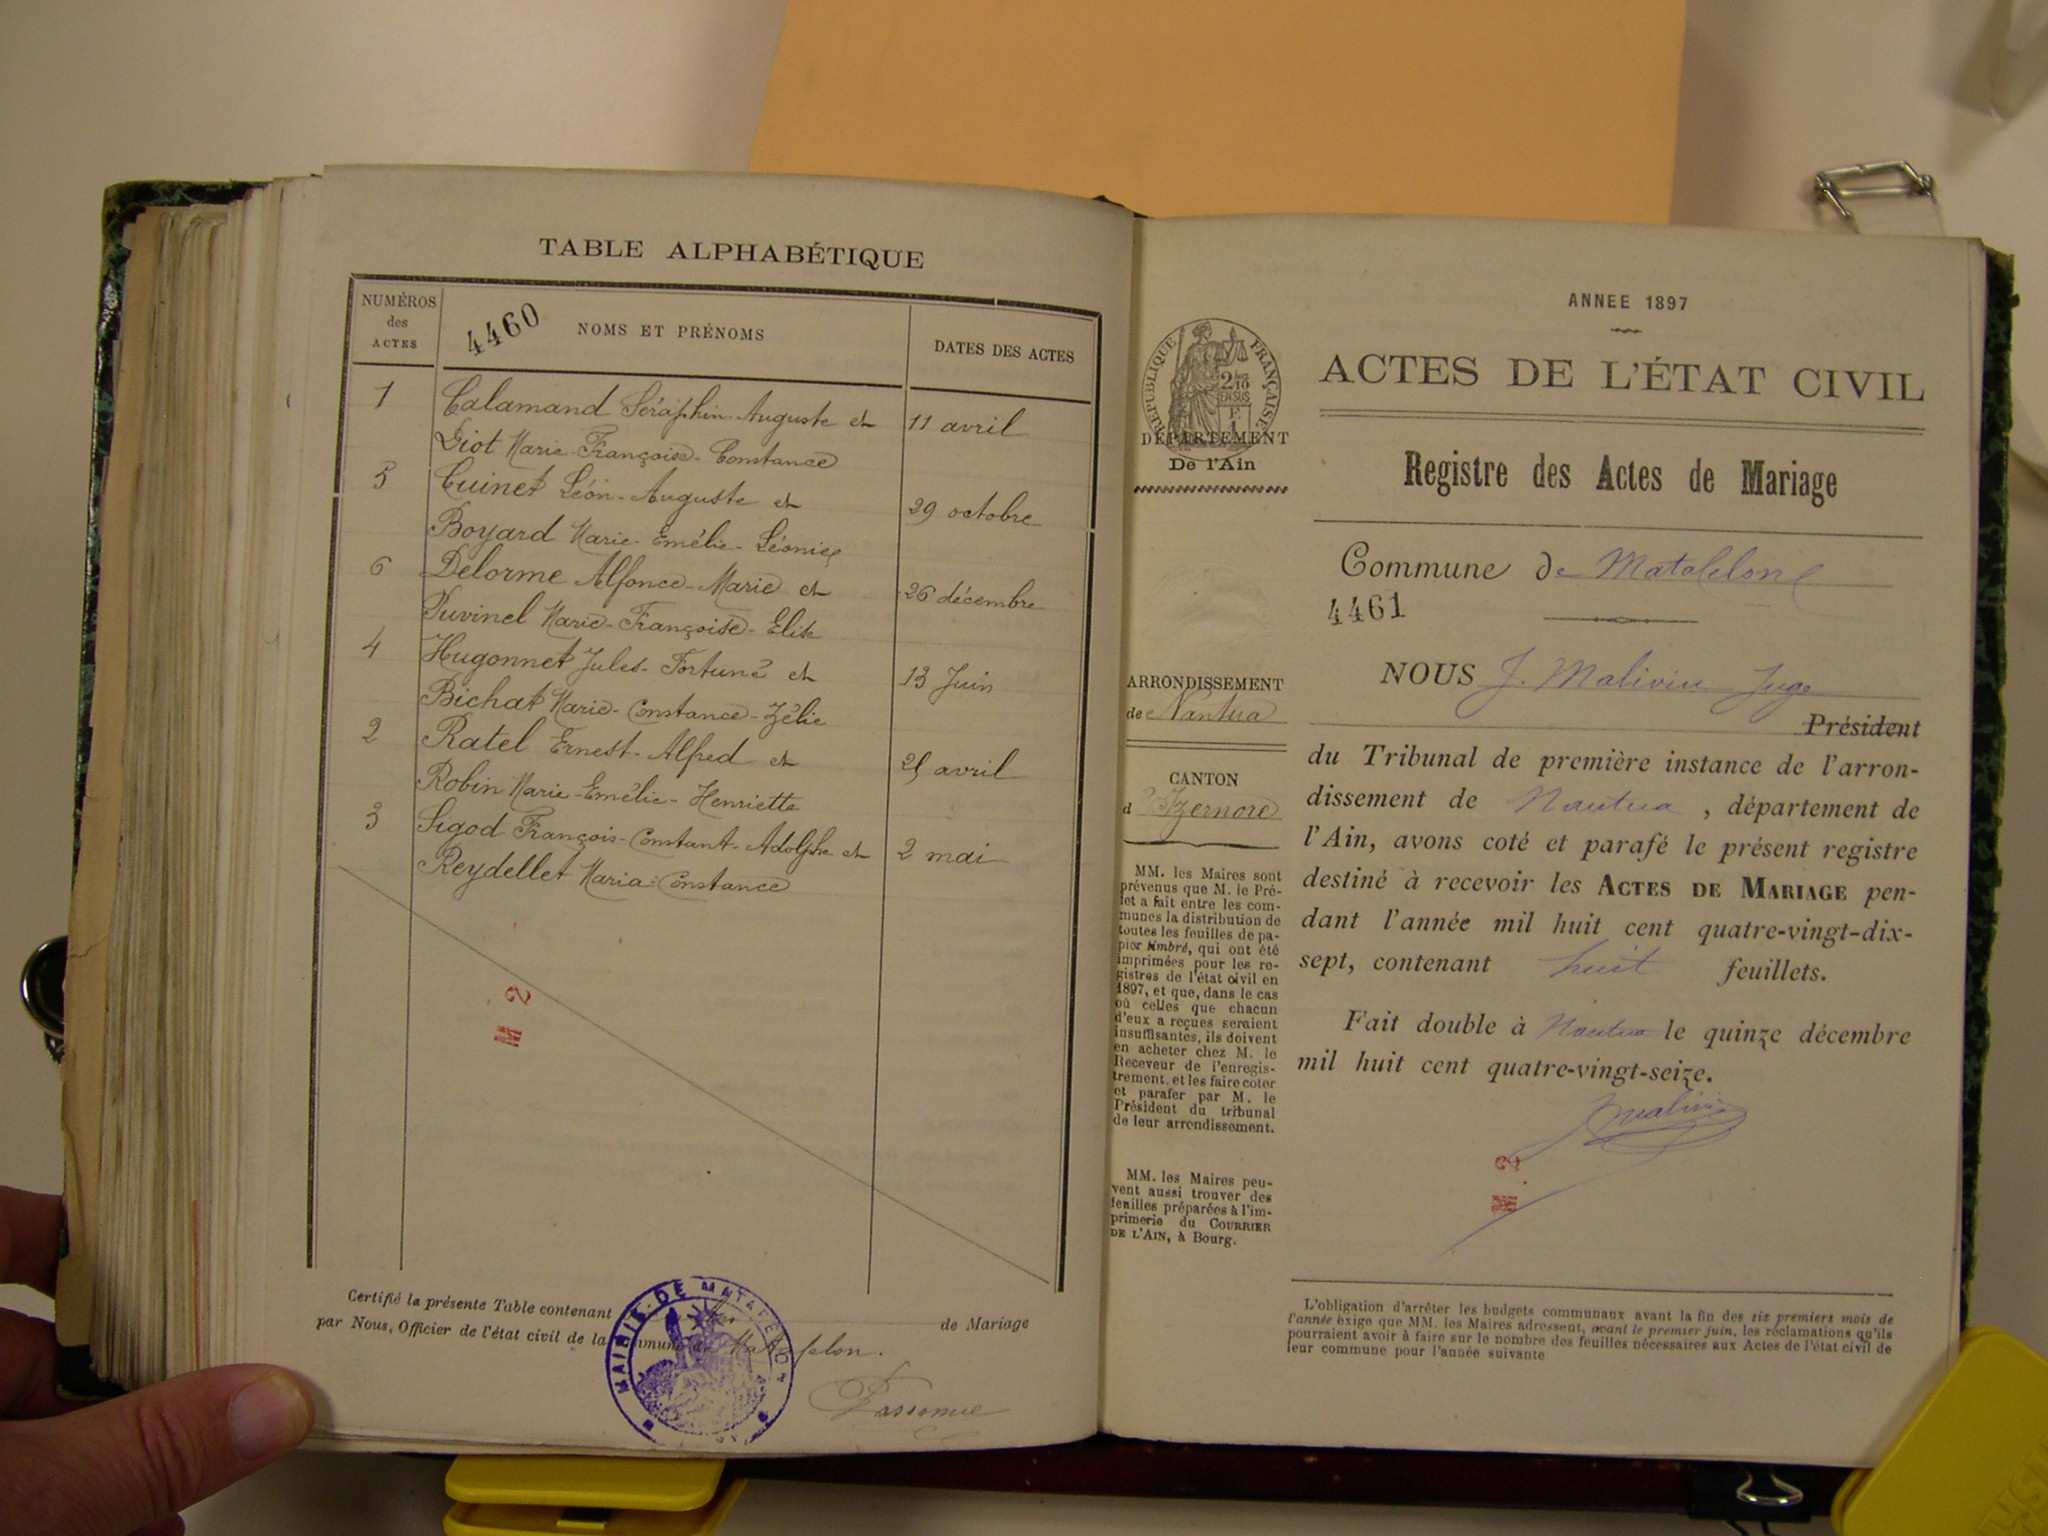 TABLE ALPHABÉTIQUE
NUMÉROS
des
ACTES
4460
NOMS ET PRÉNOMS
DATES DES ACTES
1 Calamand Séraphin-Auguste et 11 avril
Giot Marie-Françoise-Constance
5 Cuinet Léon-Auguste et 29 octobre
Boyard Marie-Emélie-Léonie
6 Delorme Alfonce-Marie et 26 décembre
Juvinel Marie-Françoise-Elise
4 Hugonnet Jules-Fortuné et 13 Juin
Bichat Marie-Constance-Zélie
2 Ratel Ernest-Alfred et 25 avril
Robin Marie-Emélie-Henriette
3 Sigod François-Constant-Adolphe et 2 mai
Reydellet Maria-Constance
M 2
Certifié la présente Table contenant de Mariage
par Nous, Officier de l'état civil de la commune de Matafelon.
MAIRIE DE MATAFELON
ANNEE 1897
ACTES DE L'ÉTAT CIVIL
Registre des Actes de Mariage
Commune de Matafelon
4461
NOUS J. Malivin Juge
Président
du Tribunal de première instance de l'arron-
dissement de Nantua, département de
l'Ain, avons coté et parafé le présent registre
destiné à recevoir les ACTES DE MARIAGE pen-
dant l'année mil huit cent quatre-vingt-dix-
sept, contenant huit feuillets.
Fait double à Nantua le quinze décembre
mil huit cent quatre-vingt-seize.
M 2
L'obligation d'arrêter les budgets communaux avant la fin des six premiers mois de
l'année exige que MM. les Maires adressent, avant le premier juin, les réclamations qu'ils
pourraient avoir à faire sur le nombre des feuilles nécessaires aux Actes de l'état civil de
leur commune pour l'année suivante
RÉPUBLIQUE FRANÇAISE
2/10
EN SUS
DÉPARTEMENT
De l'Ain
ARRONDISSEMENT
de Nantua
CANTON
d'Izernore
MM. les Maires sont
prévenus que M. le Pré-
fet a fait entre les com-
munes la distribution de
toutes les feuilles de pa-
pier timbré, qui ont été
imprimées pour les re-
gistres de l'état civil en
1897, et que, dans le cas
où celles que chacun
d'eux a reçues seraient
insuffisantes, ils doivent
en acheter chez M. le
Receveur de l'enregis-
trement, et les faire coter
et parafer par M. le
Président du tribunal
de leur arrondissement.
MM. les Maires peu-
vent aussi trouver des
feuilles préparées à l'im-
primerie du COURRIER
DE L'AIN, à Bourg.